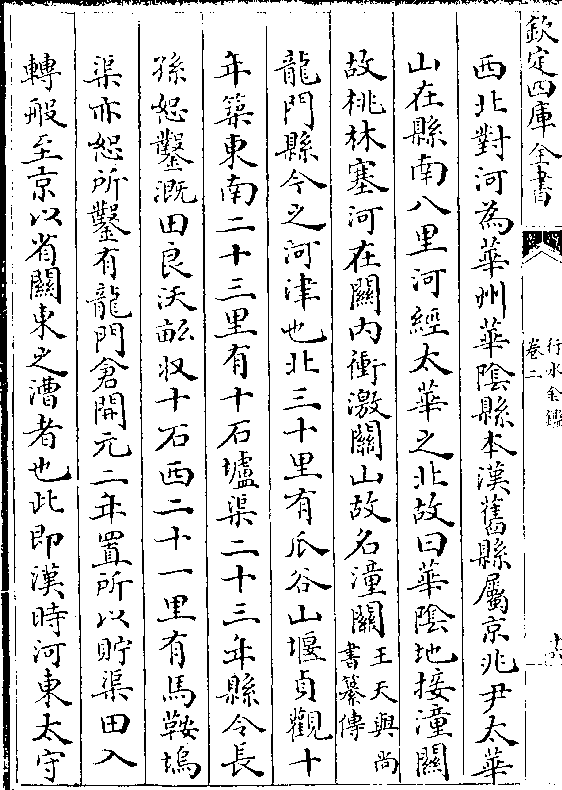 欽定四庫全書
行水金鑑
卷二
十六
西北對河為華州華陰縣本漢舊縣屬京兆尹太華
山在縣南八里河經太華之北故曰華陰地接潼關
故桃林塞河在關內衝激關山故名潼關王天與尚
書纂傳
龍門縣今之河津也北三十里有瓜谷山堰貞觀十
年築東南二十三里有十石壚渠二十三年縣令長
孫恕鑿溉田良沃畝収十石西二十一里有馬鞍塢
渠亦恕所鑿有龍門倉開元二年置所以貯渠田入
轉般至京以省關東之漕者也此即漢時河東太守